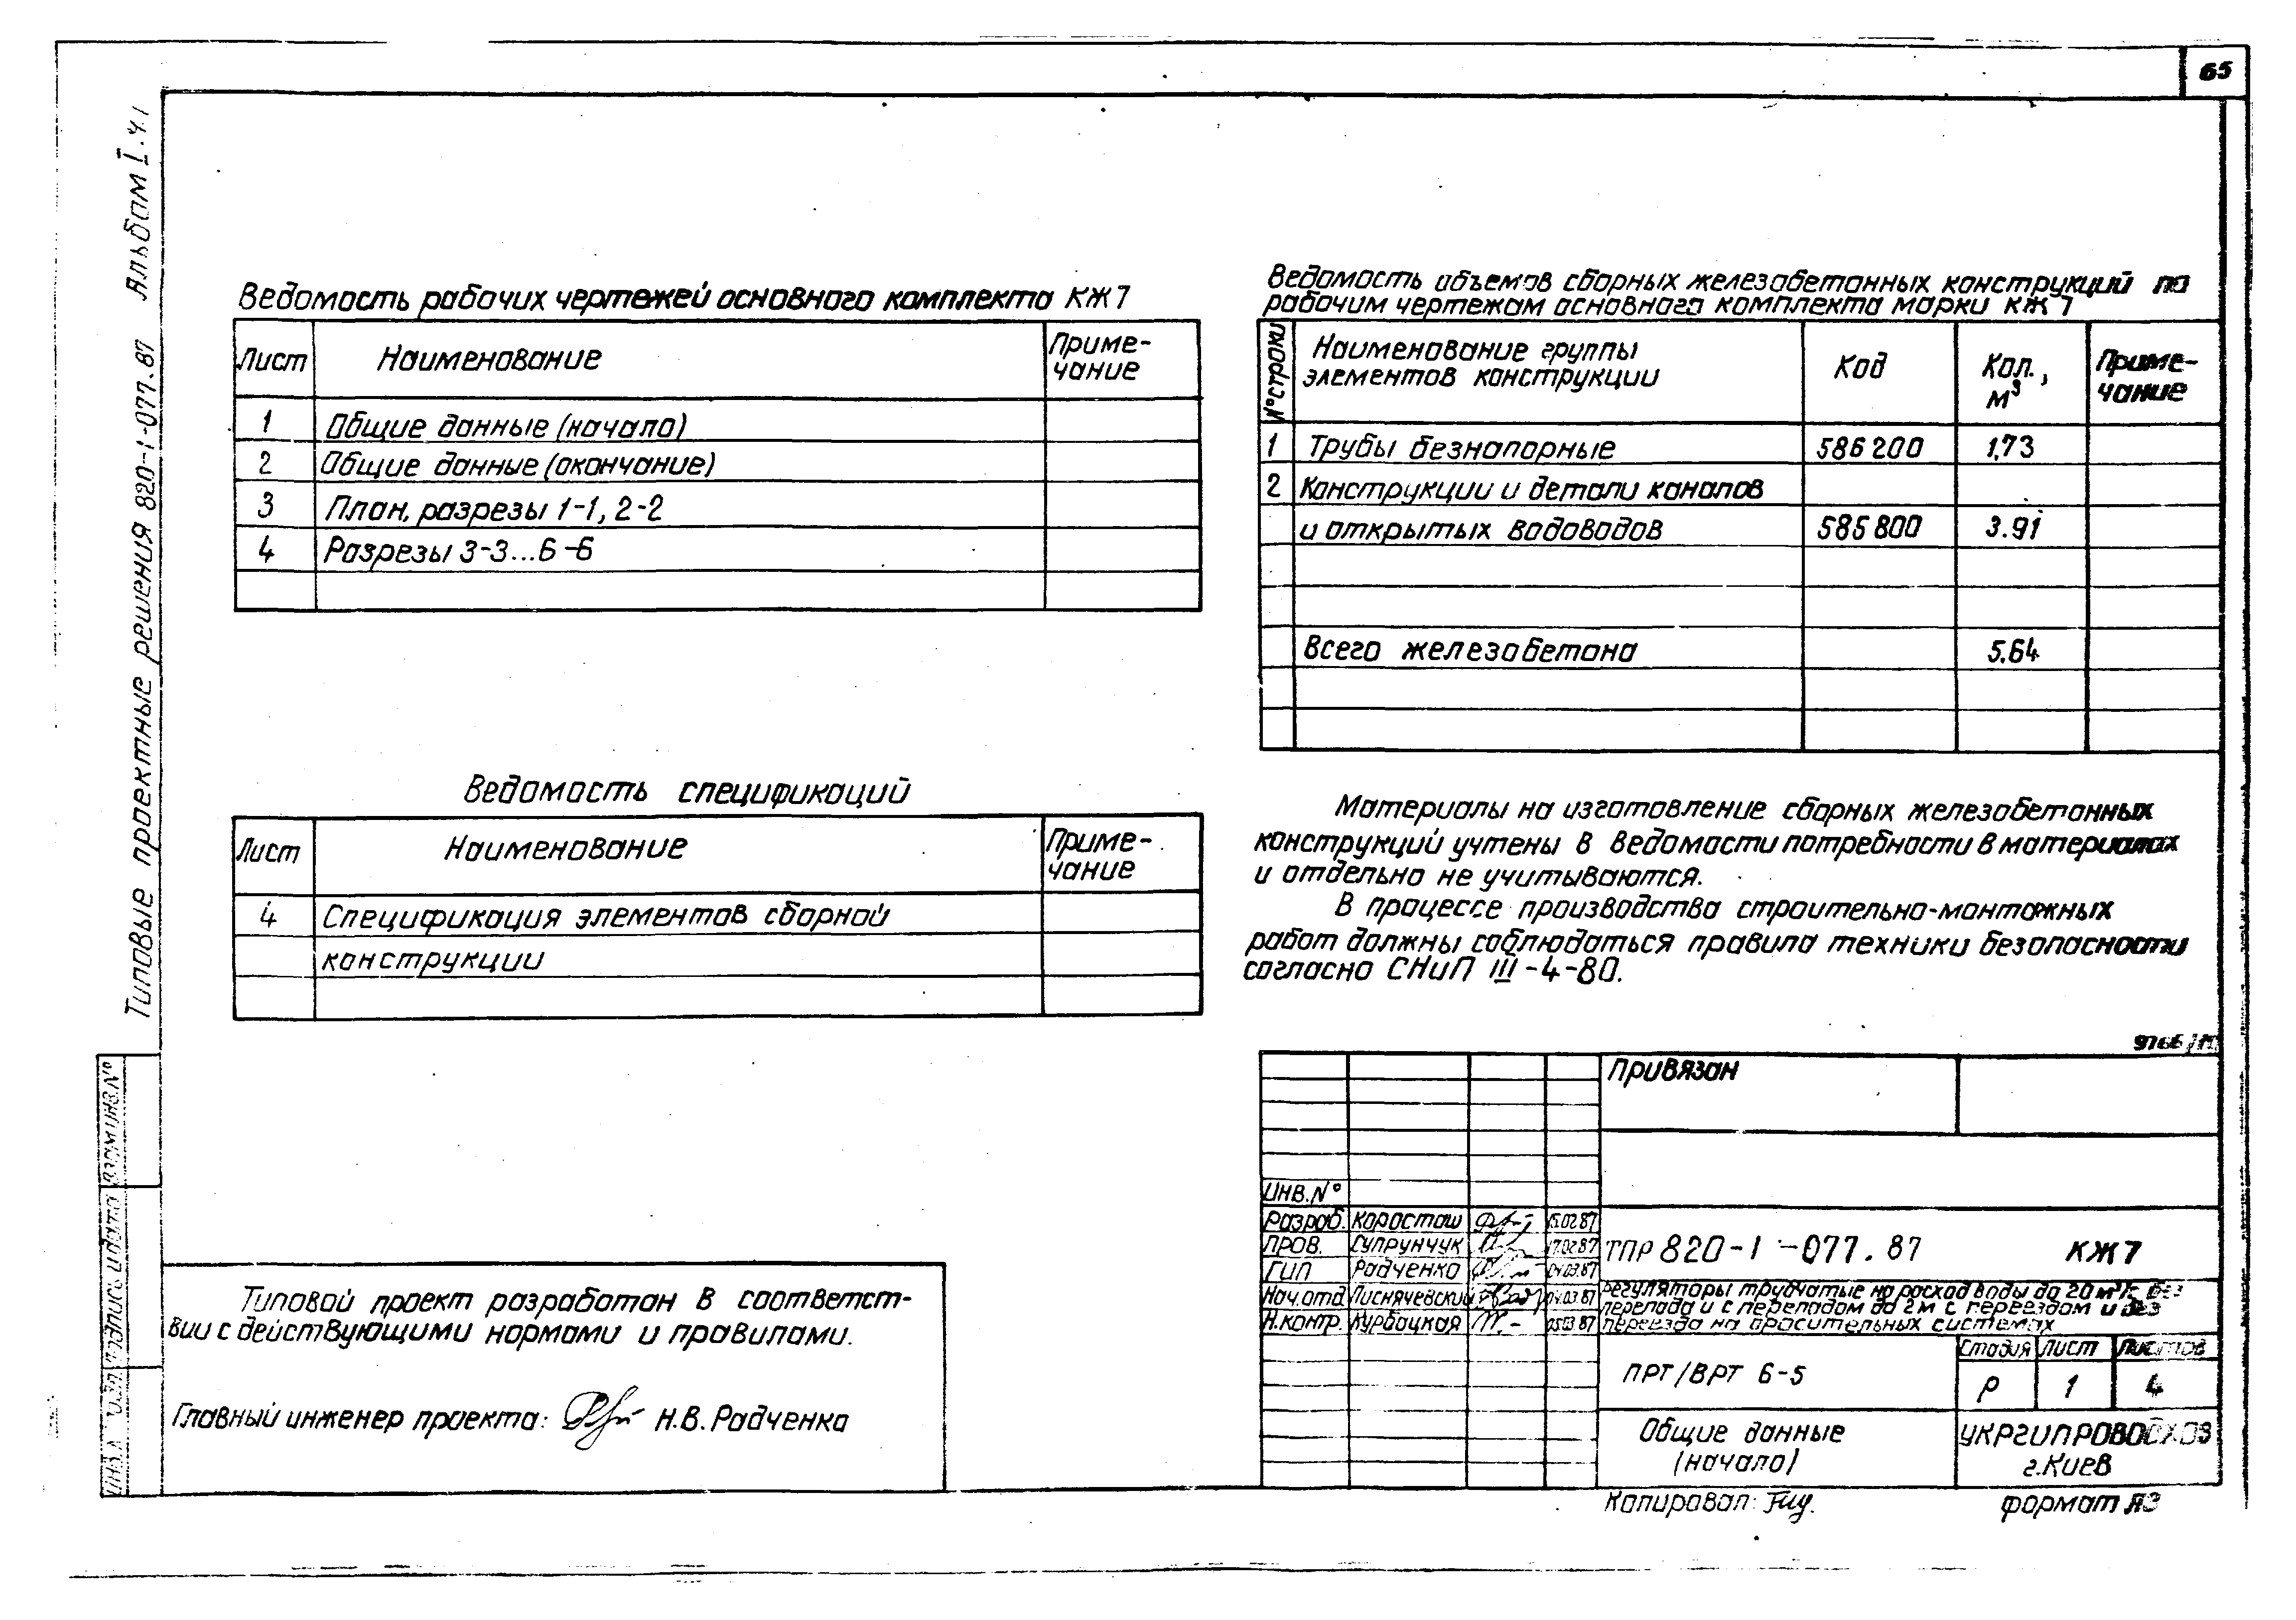 65
Типовые проектные решения 820-1-077.87 Альбом I.ч.1
Ведомость рабочих чертежей основного комплекта КЖ7
Лист Наименование Приме-
чание
1 Общие данные (начало)
2 Общие данные (окончание)
3 План, разрезы 1-1, 2-2
4 Разрезы 3-3...6-6
Ведомость спецификаций
Лист Наименование Приме-
чание
4 Спецификация элементов сборной
конструкции
Ведомость объемов сборных железобетонных конструкций по
рабочим чертежам основного комплекта марки КЖ7
№ строки Наименование группы
элементов конструкции Код Кол.,
м³ Приме-
чание
1 Трубы безнапорные 586200 1,73
2 Конструкции и детали каналов
и открытых водоводов 585800 3.91
Всего железобетона 5.64
Материалы на изготовление сборных железобетонных
конструкций учтены в ведомости потребности в материалах
и отдельно не учитываются.
В процессе производства строительно-монтажных
работ должны соблюдаться правила техники безопасности
согласно СНиП III-4-80.
Взам.инв.№
Подпись и дата
Типовой проект разработан в соответст-
вии с действующими нормами и правилами.
Главный инженер проекта: Н.В.Радченко
Привязан
Инв.№
Разраб. Коросташ 15.02.87
Пров. Супрунчук 17.02.87
ГИП Радченко 04.03.87
Нач.отд Лиснячевский 04.03.87
Н.контр. Курбацкая 05.03.87
ТПР 820-1-077.87 КЖ7
Регуляторы трубчатые на расход воды до 20 м³/с без
перепада и с перепадом до 2м с переездом и без
переезда на оросительных системах
ПРТ/ВРТ 6-5
Стадия Лист Листов
Р 1 4
Общие данные
(начало)
УКРГИПРОВОДХОЗ
г.Киев
Копировал:
формат А3